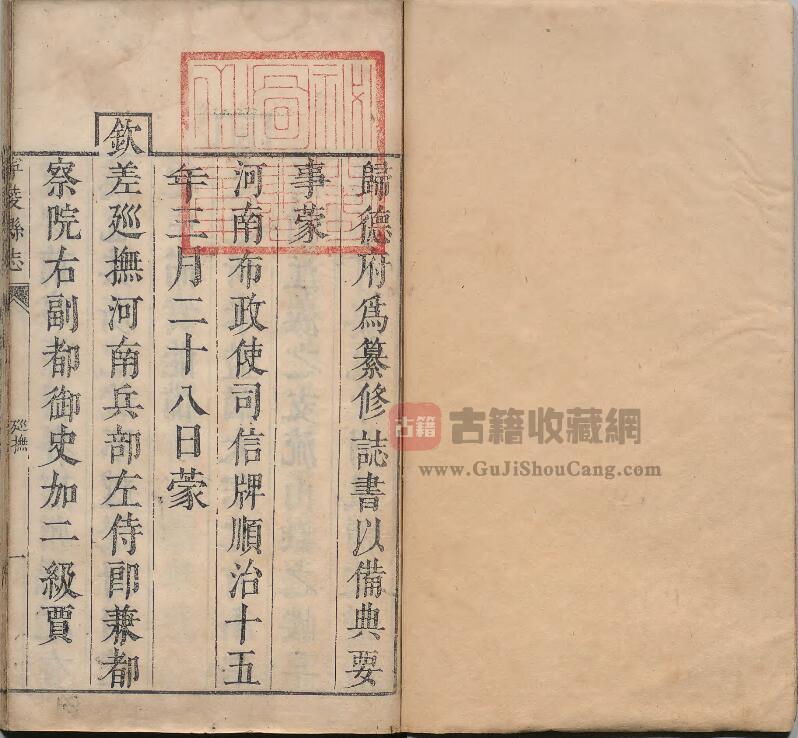 歸德府爲纂修誌書以備典要
事蒙
河南布政使司信牌順治十五
年三月二十八日蒙
欽差廵撫河南兵部左侍郎兼都
察院右副都御史加二級賈
寧陵縣志
廵撫
一
古籍
古籍收藏網
www.GuJiShouCang.com